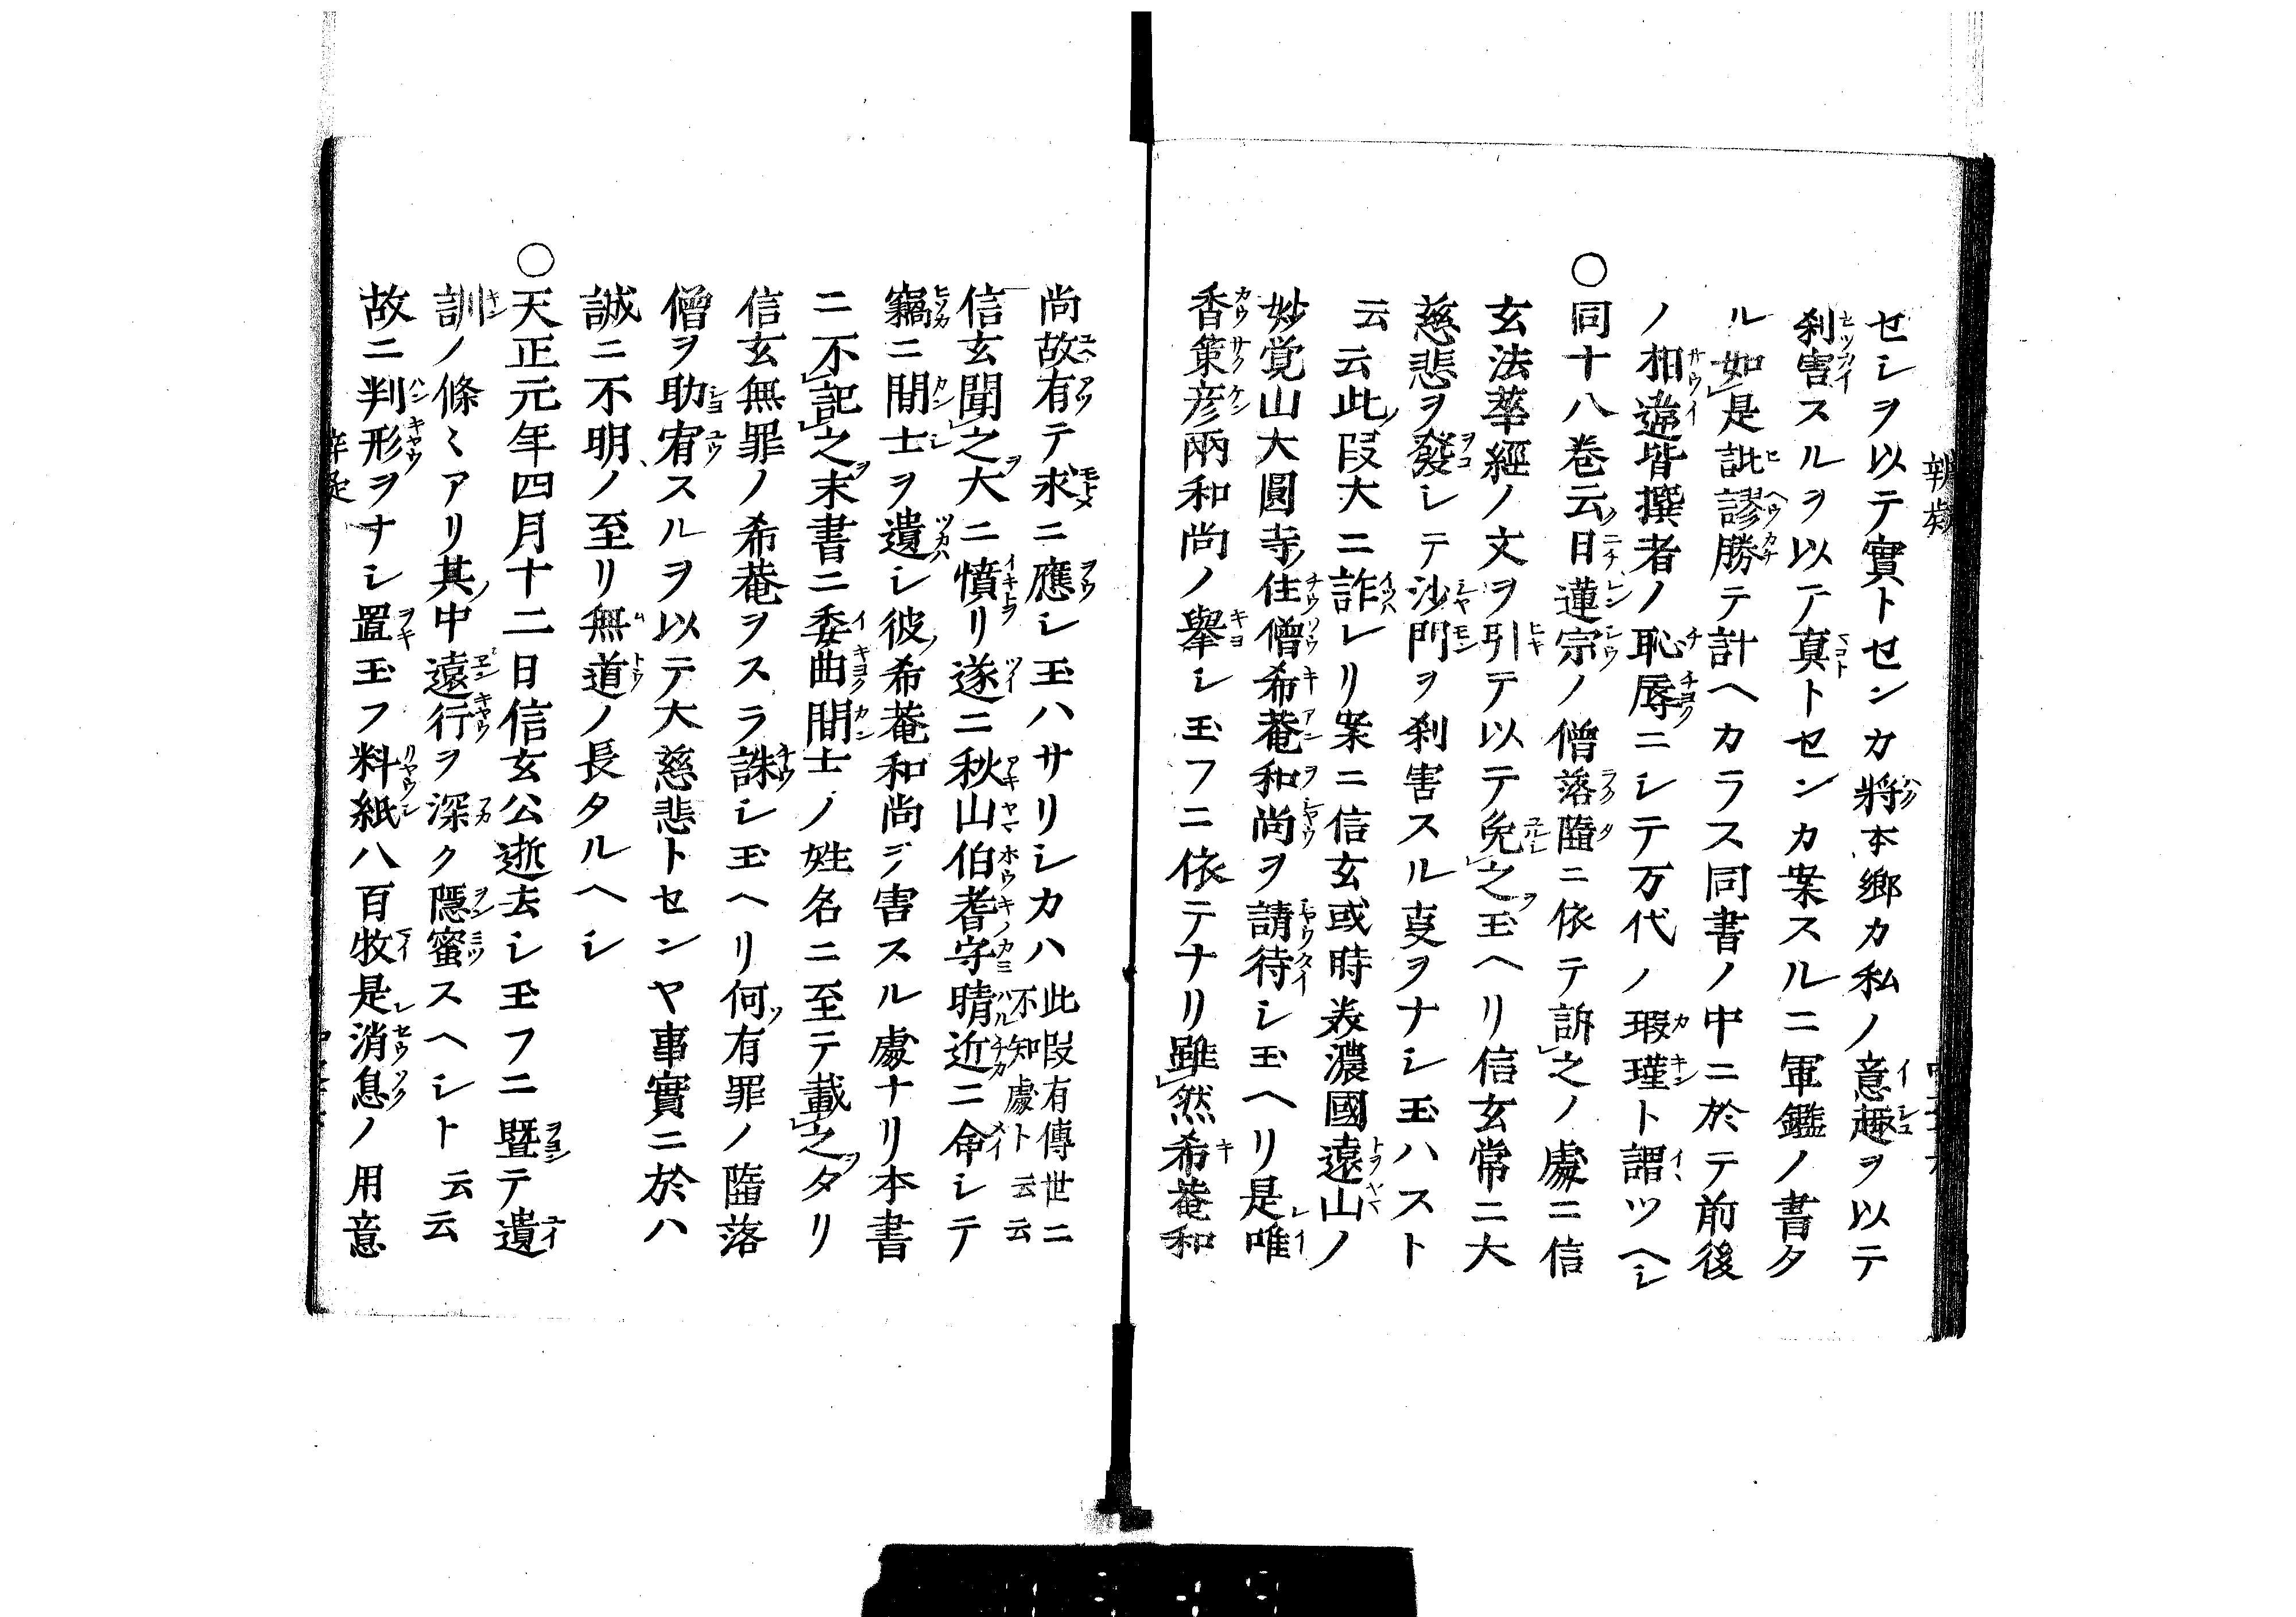 セシヲ以テ實トセンカ將本郷カ私ノ意趣ヲ以テ
刹害スルヲ以テ真トセンカ案スルニ軍鑑ノ書タ
ル如是訛謬勝テ計ヘカラス同書ノ中ニ於テ前後
ノ相違皆撰者ノ恥辱ニシテ万代ノ瑕瑾ト謂ツヘシ
○同十八巻云日蓮宗ノ僧落墮ニ依テ訴之ノ處ニ信
玄法華經ノ文ヲ引テ以テ免之玉ヘリ信玄常ニ大
慈悲ヲ發シテ沙門ヲ刹害スル叓ヲナシ玉ハスト
云云此段大ニ詐レリ案ニ信玄或時美濃國遠山ノ
妙覚山大圓寺ノ住僧希菴和尚ヲ請待シ玉ヘリ是唯
香策彦兩和尚ノ舉シ玉フニ依テナリ雖然希菴和
尚故有テ求ニ應シ玉ハサリシカハ此段有傳世ニ不知處ト云云
信玄聞之大ニ憤リ遂ニ秋山伯耆守晴近ニ命シテ
竊ニ間士ヲ遣シ彼希菴和尚ヲ害スル處ナリ本書
ニ不記之末書ニ委曲間士ノ姓名ニ至テ載之タリ
信玄無罪ノ希菴ヲスラ誅シ玉ヘリ何有罪ノ墮落
僧ヲ助宥スルヲ以テ大慈悲トセンヤ事實ニ於ハ
誠ニ不明ノ至リ無道ノ長タルヘシ
○天正元年四月十二日信玄公逝去シ玉フニ暨テ遺
訓ノ條〻アリ其中遠行ヲ深ク隱蜜スヘシト云云
故ニ判形ヲナシ置玉フ料紙八百牧是消息ノ用意